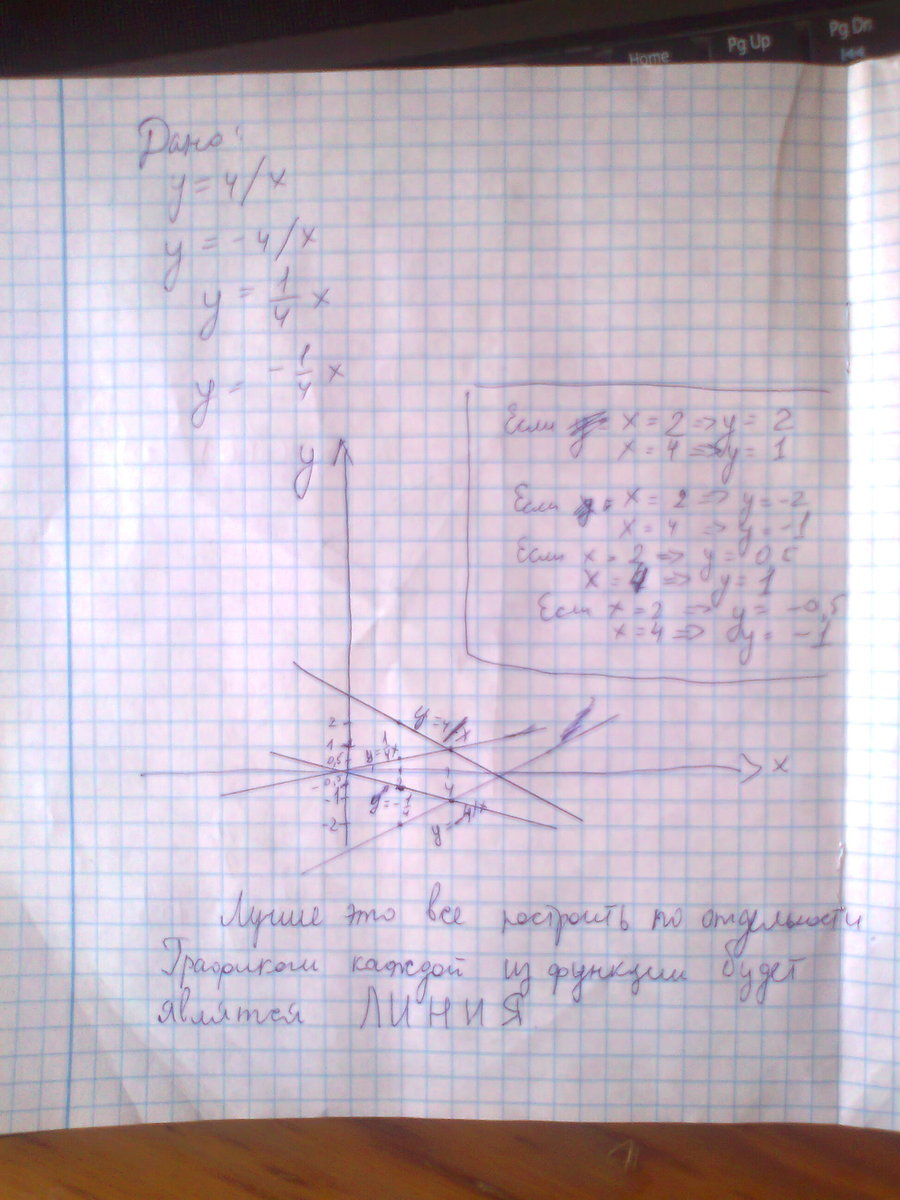 Home
Pg Up
Pg Dn
Дано:
y = 4/x
y = -4/x
y = 1/4 x
y = -1/4 x
Если x = 2 => y = 2
x = 4 => y = 1
Если x = 2 => y = -2
x = 4 => y = -1
Если x = 2 => y = 0,5
x = 4 => y = 1
Если x = 2 => y = -0,5
x = 4 => y = -1
y
2
1
0,5
-0,5
-1
-2
y = 4/x
y = 1/4 x
x
2
4
y = -1/4
y = -4/x
Лучше это все построить по отдельности
Графиком каждой из функции будет
являтся ЛИНИЯ